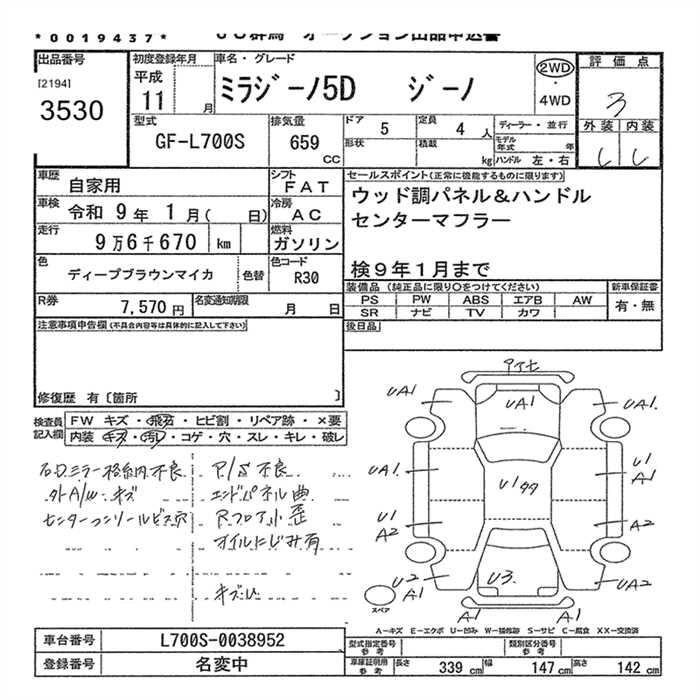 *0019437*
出品番号
[2194]
3530
初度登録年月
平成
11 月
車名・グレード
ミラジーノ5D ジーノ
2WD
・
4WD
評価点
3
外装 内装
型式
GF-L700S
排気量
659
CC
ドア 5
定員 4 人
形状
積載 kg
ディーラー・並行
モデル年式 年
ハンドル 左・右
車歴 自家用
シフト FAT
車検 令和 9年 1月( 日)
冷房 AC
走行 9万6千670 km
燃料 ガソリン
色 ディープブラウンマイカ 色替
色コード R30
R券 7,570円
名変通知期限 月 日
セールスポイント(正常に機能するものに限ります)
ウッド調パネル&ハンドル
センターマフラー
検9年1月まで
装備品(純正品に限り○をつけてください)
新車保証書
PS PW ABS エアB AW
有・無
SR ナビ TV カワ
後日品
注意事項申告欄(不具合内容等は具体的に記入して下さい)
修復歴 有〔箇所 〕
検査員記入欄
FW キズ・飛石・ヒビ割・リペア跡・×要
内装 キズ・汚レ・コゲ・穴・スレ・キレ・破レ
右Dミラー格納不良
P/S不良
外A/W キズ
エンドパネル曲
センターコンソールビス穴
Rフロア小歪
オイルにじみ有
UA1
UA1
UA1.
UA1
U1
A1
U1
A2
A2
U2
A1
U3.
UA2
スペア
A1
A1
A-キズ E-エクボ U-凹み W-補修跡 S-サビ C-腐食 XX-交換済
車台番号 L700S-0038952
登録番号 名変中
型式指定番号
参考
類別区分番号
参考
車庫証明用
参考
長さ 339 cm
幅 147 cm
高さ 142 cm